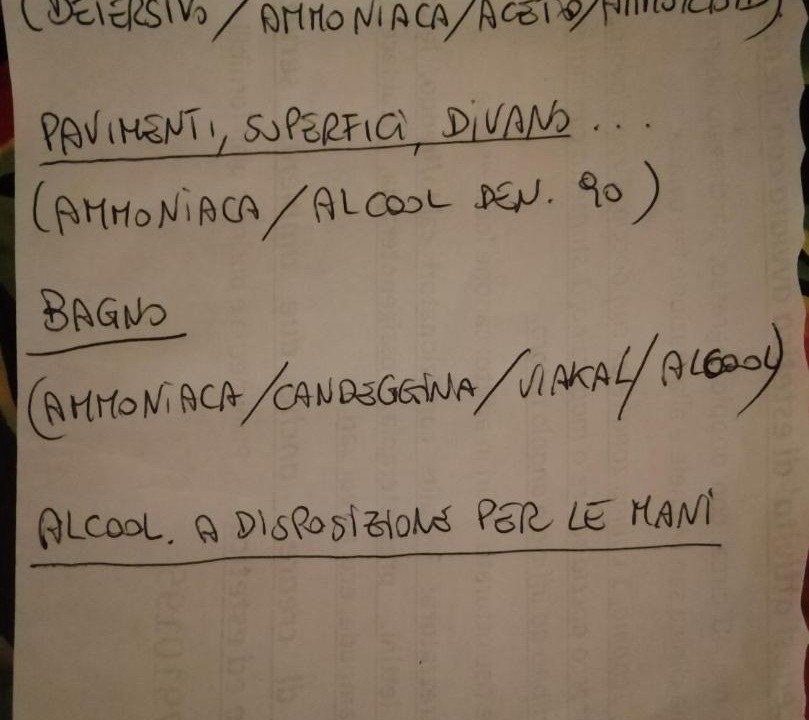 (DETERSIVO/AMMONIACA/ACETO/
PAVIMENTI, SUPERFICI, DIVANO...
(AMMONIACA/ALCOOL DEN. 90)
BAGNO
(AMMONIACA/CANDEGGINA/VIAKAL/ALCOOL)
ALCOOL. A DISPOSIZIONE PER LE MANI